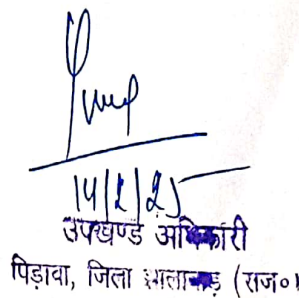 14/2/25
उपखण्ड अधिकारी
पिड़ावा, जिला झालावाड़ (राज०)